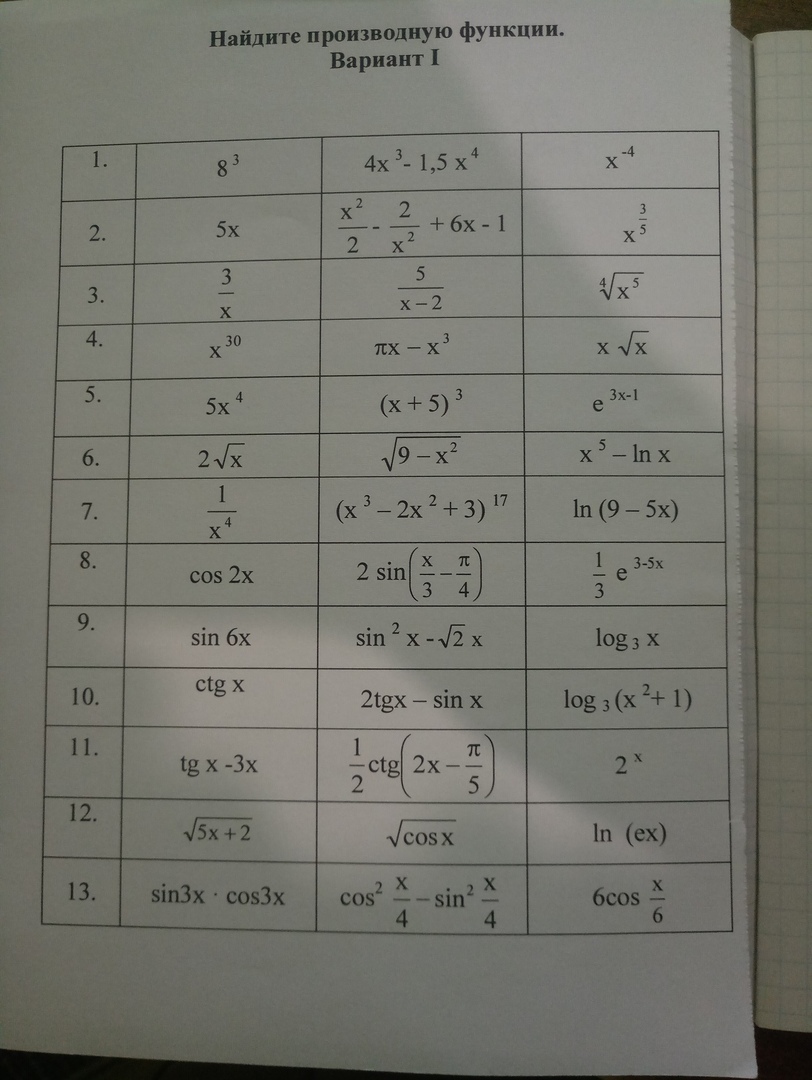 Найдите производную функции.
Вариант I
1. 8³ 4x³- 1,5 x⁴ x⁻⁴
2. 5x x²/2 - 2/x² + 6x - 1 x^(3/5)
3. 3/x 5/(x – 2) ⁴√x⁵
4. x³⁰ πx – x³ x √x
5. 5x⁴ (x + 5)³ e^(3x-1)
6. 2√x √(9 – x²) x⁵ – ln x
7. 1/x⁴ (x³ – 2x² + 3)¹⁷ ln (9 – 5x)
8. cos 2x 2 sin(x/3 – π/4) 1/3 e^(3-5x)
9. sin 6x sin² x -√2 x log₃ x
10. ctg x 2tgx – sin x log₃ (x²+ 1)
11. tg x -3x 1/2 ctg(2x – π/5) 2ˣ
12. √(5x + 2) √(cos x) ln (ex)
13. sin3x · cos3x cos² x/4 – sin² x/4 6cos x/6